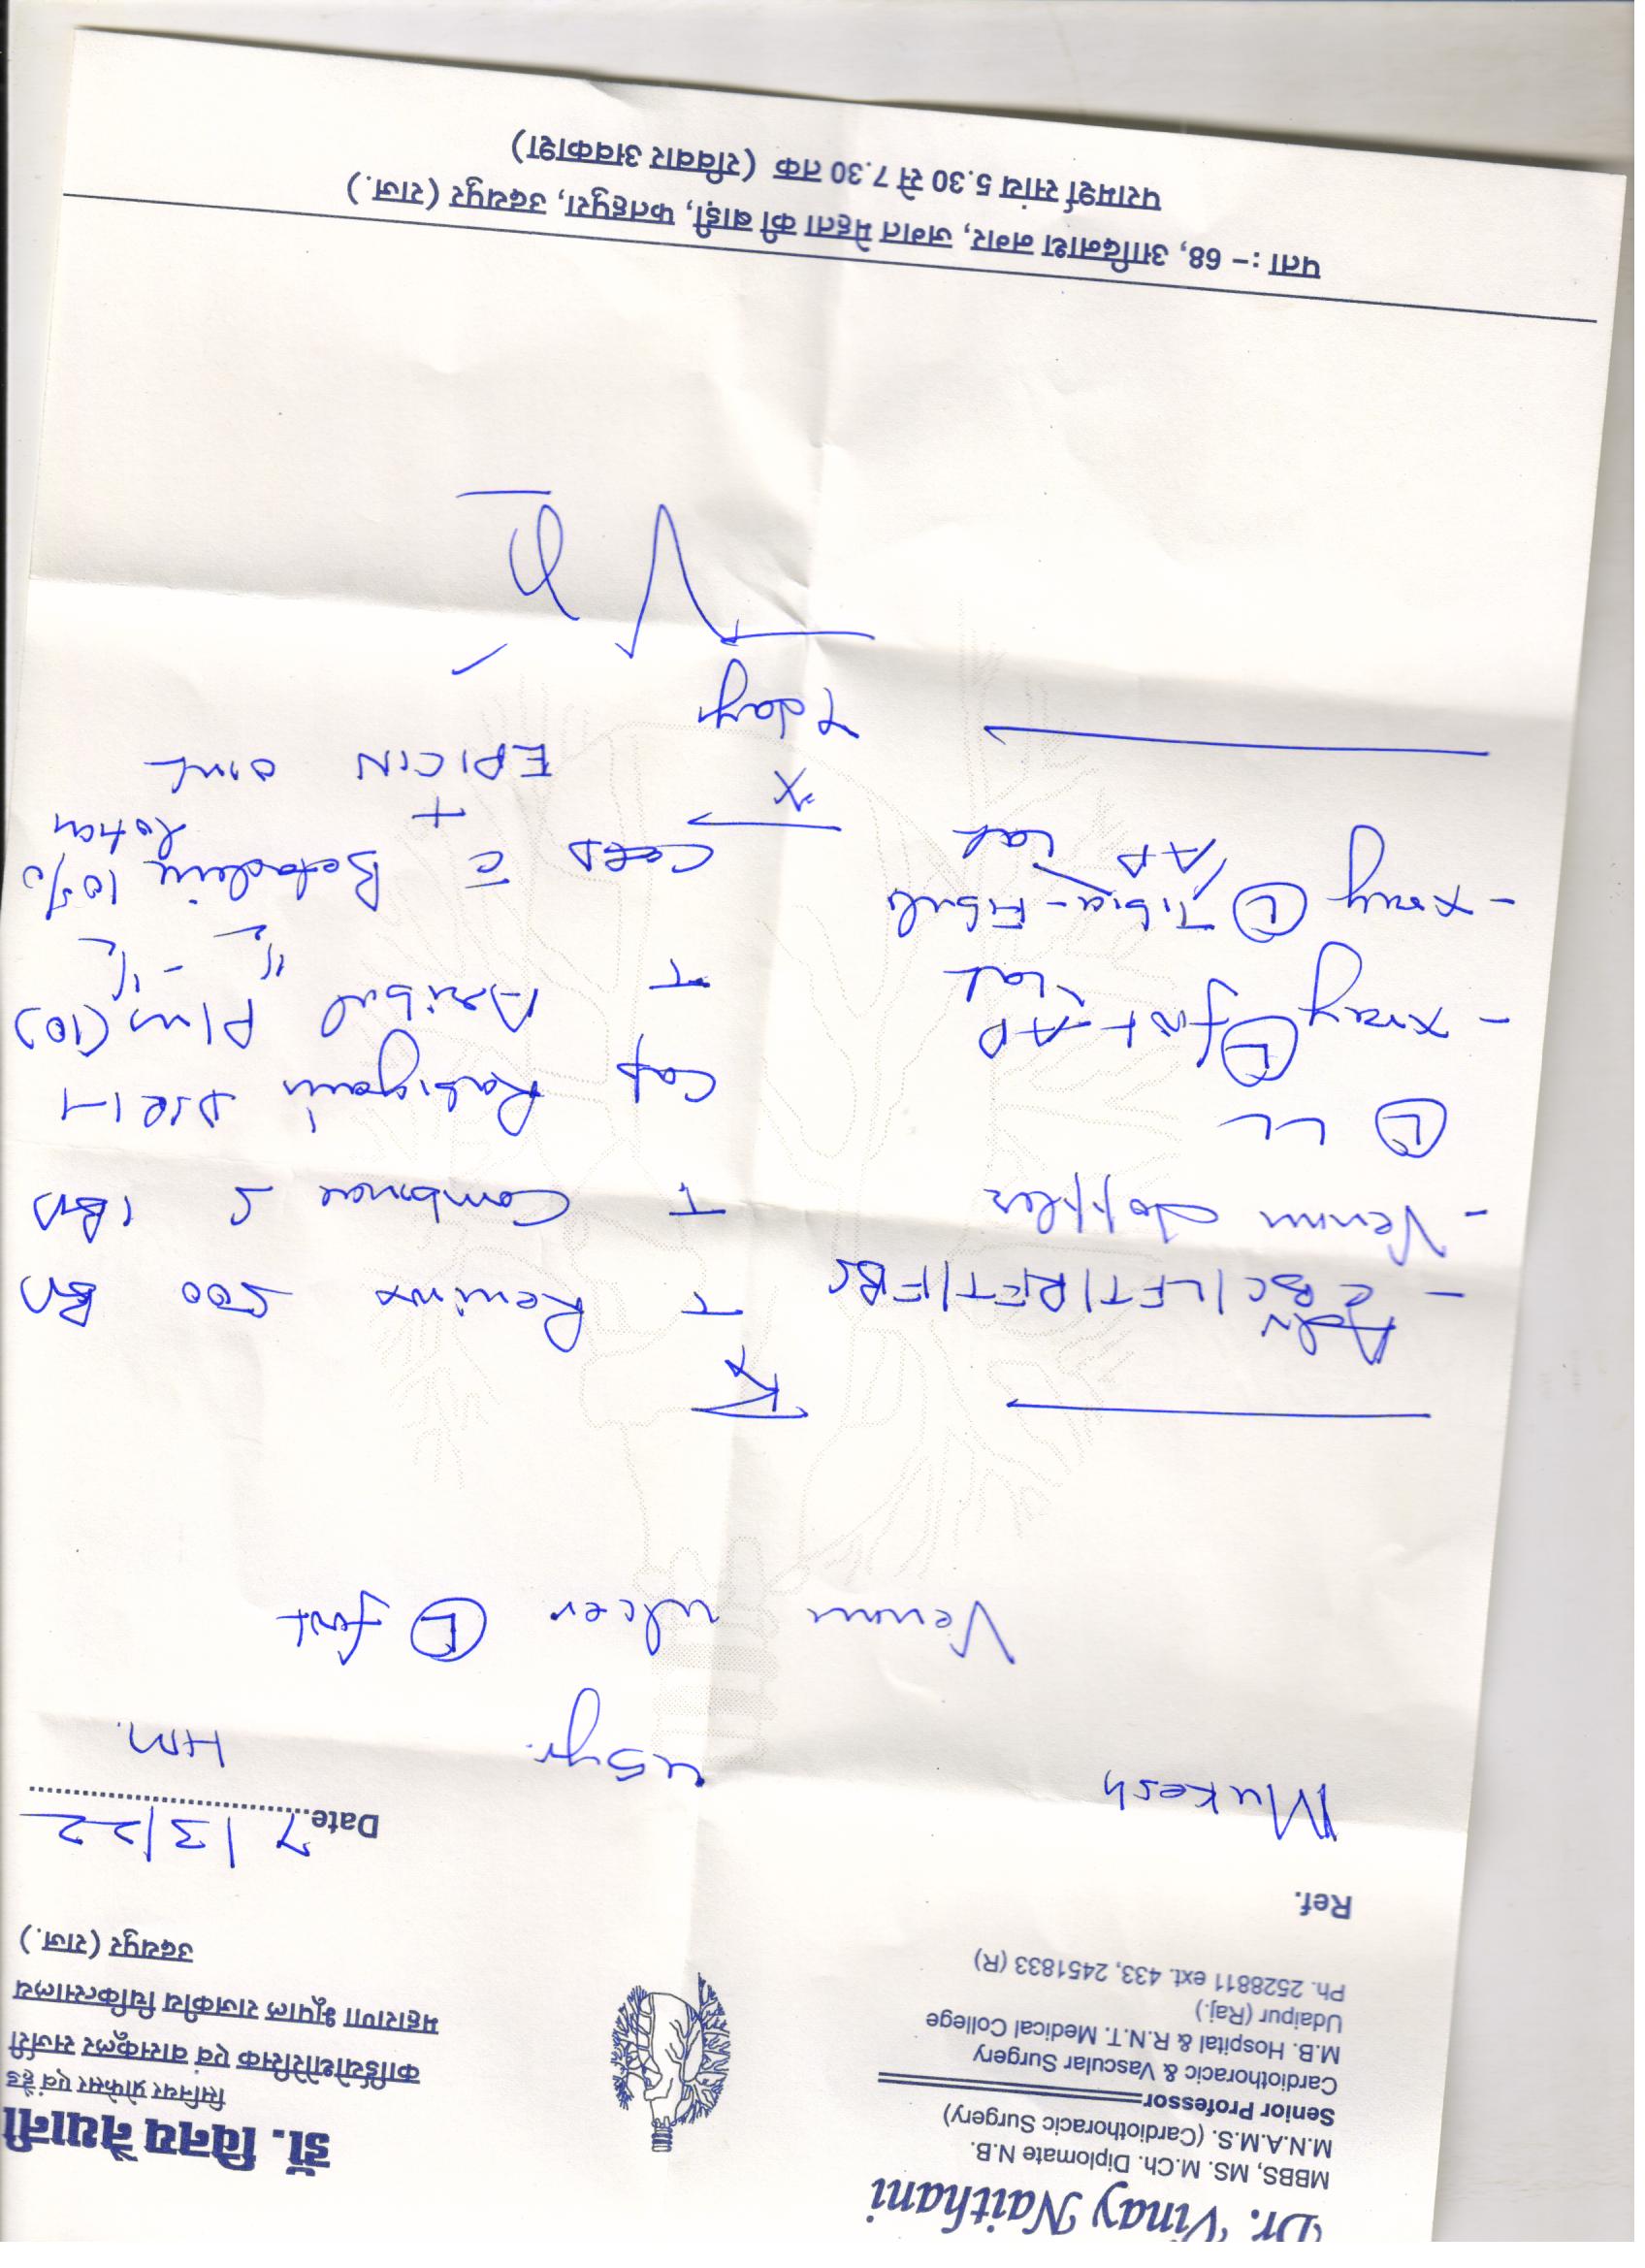 Dr. Vinay Naithani
MBBS, MS. M.Ch. Diplomate N.B.
M.N.A.M.S. (Cardiothoracic Surgery)
Senior Professor
Cardiothoracic & Vascular Surgery
M.B. Hospital & R.N.T. Medical College
Udaipur (Raj.)
Ph. 2528811 ext. 433, 2451833 (R)
डॉ. विनय नैथानी
सिनियर प्रोफेसर एवं हैड
कार्डियोथोरेसिक एवं वासकूलर सर्जरी
महाराणा भूपाल राजकीय चिकित्सालय
उदयपुर (राज.)
Ref.
Date 7/3/22
Mukesh 45yr. HM.
Venous ulcer (L) foot
Adv
- CBC/LFT/RFT/FBS
- Venous doppler
(L) LL
- xray (L) foot - AP
Lat
- xray (L) Tibia-Fibula
/AP
Lat
Rx
T 500 BD
T 5 1 BD
Cap DSR 1-1
T Plus (10)
½ - ½
c̄ Betadine 10%
lotion
+
EPICIN oint
x
7 days
पता :- 68, आदिनाथ नगर, जगत मेहता की बाड़ी, फतहपुरा, उदयपुर (राज.)
परामर्श सायं 5.30 से 7.30 तक (रविवार अवकाश)